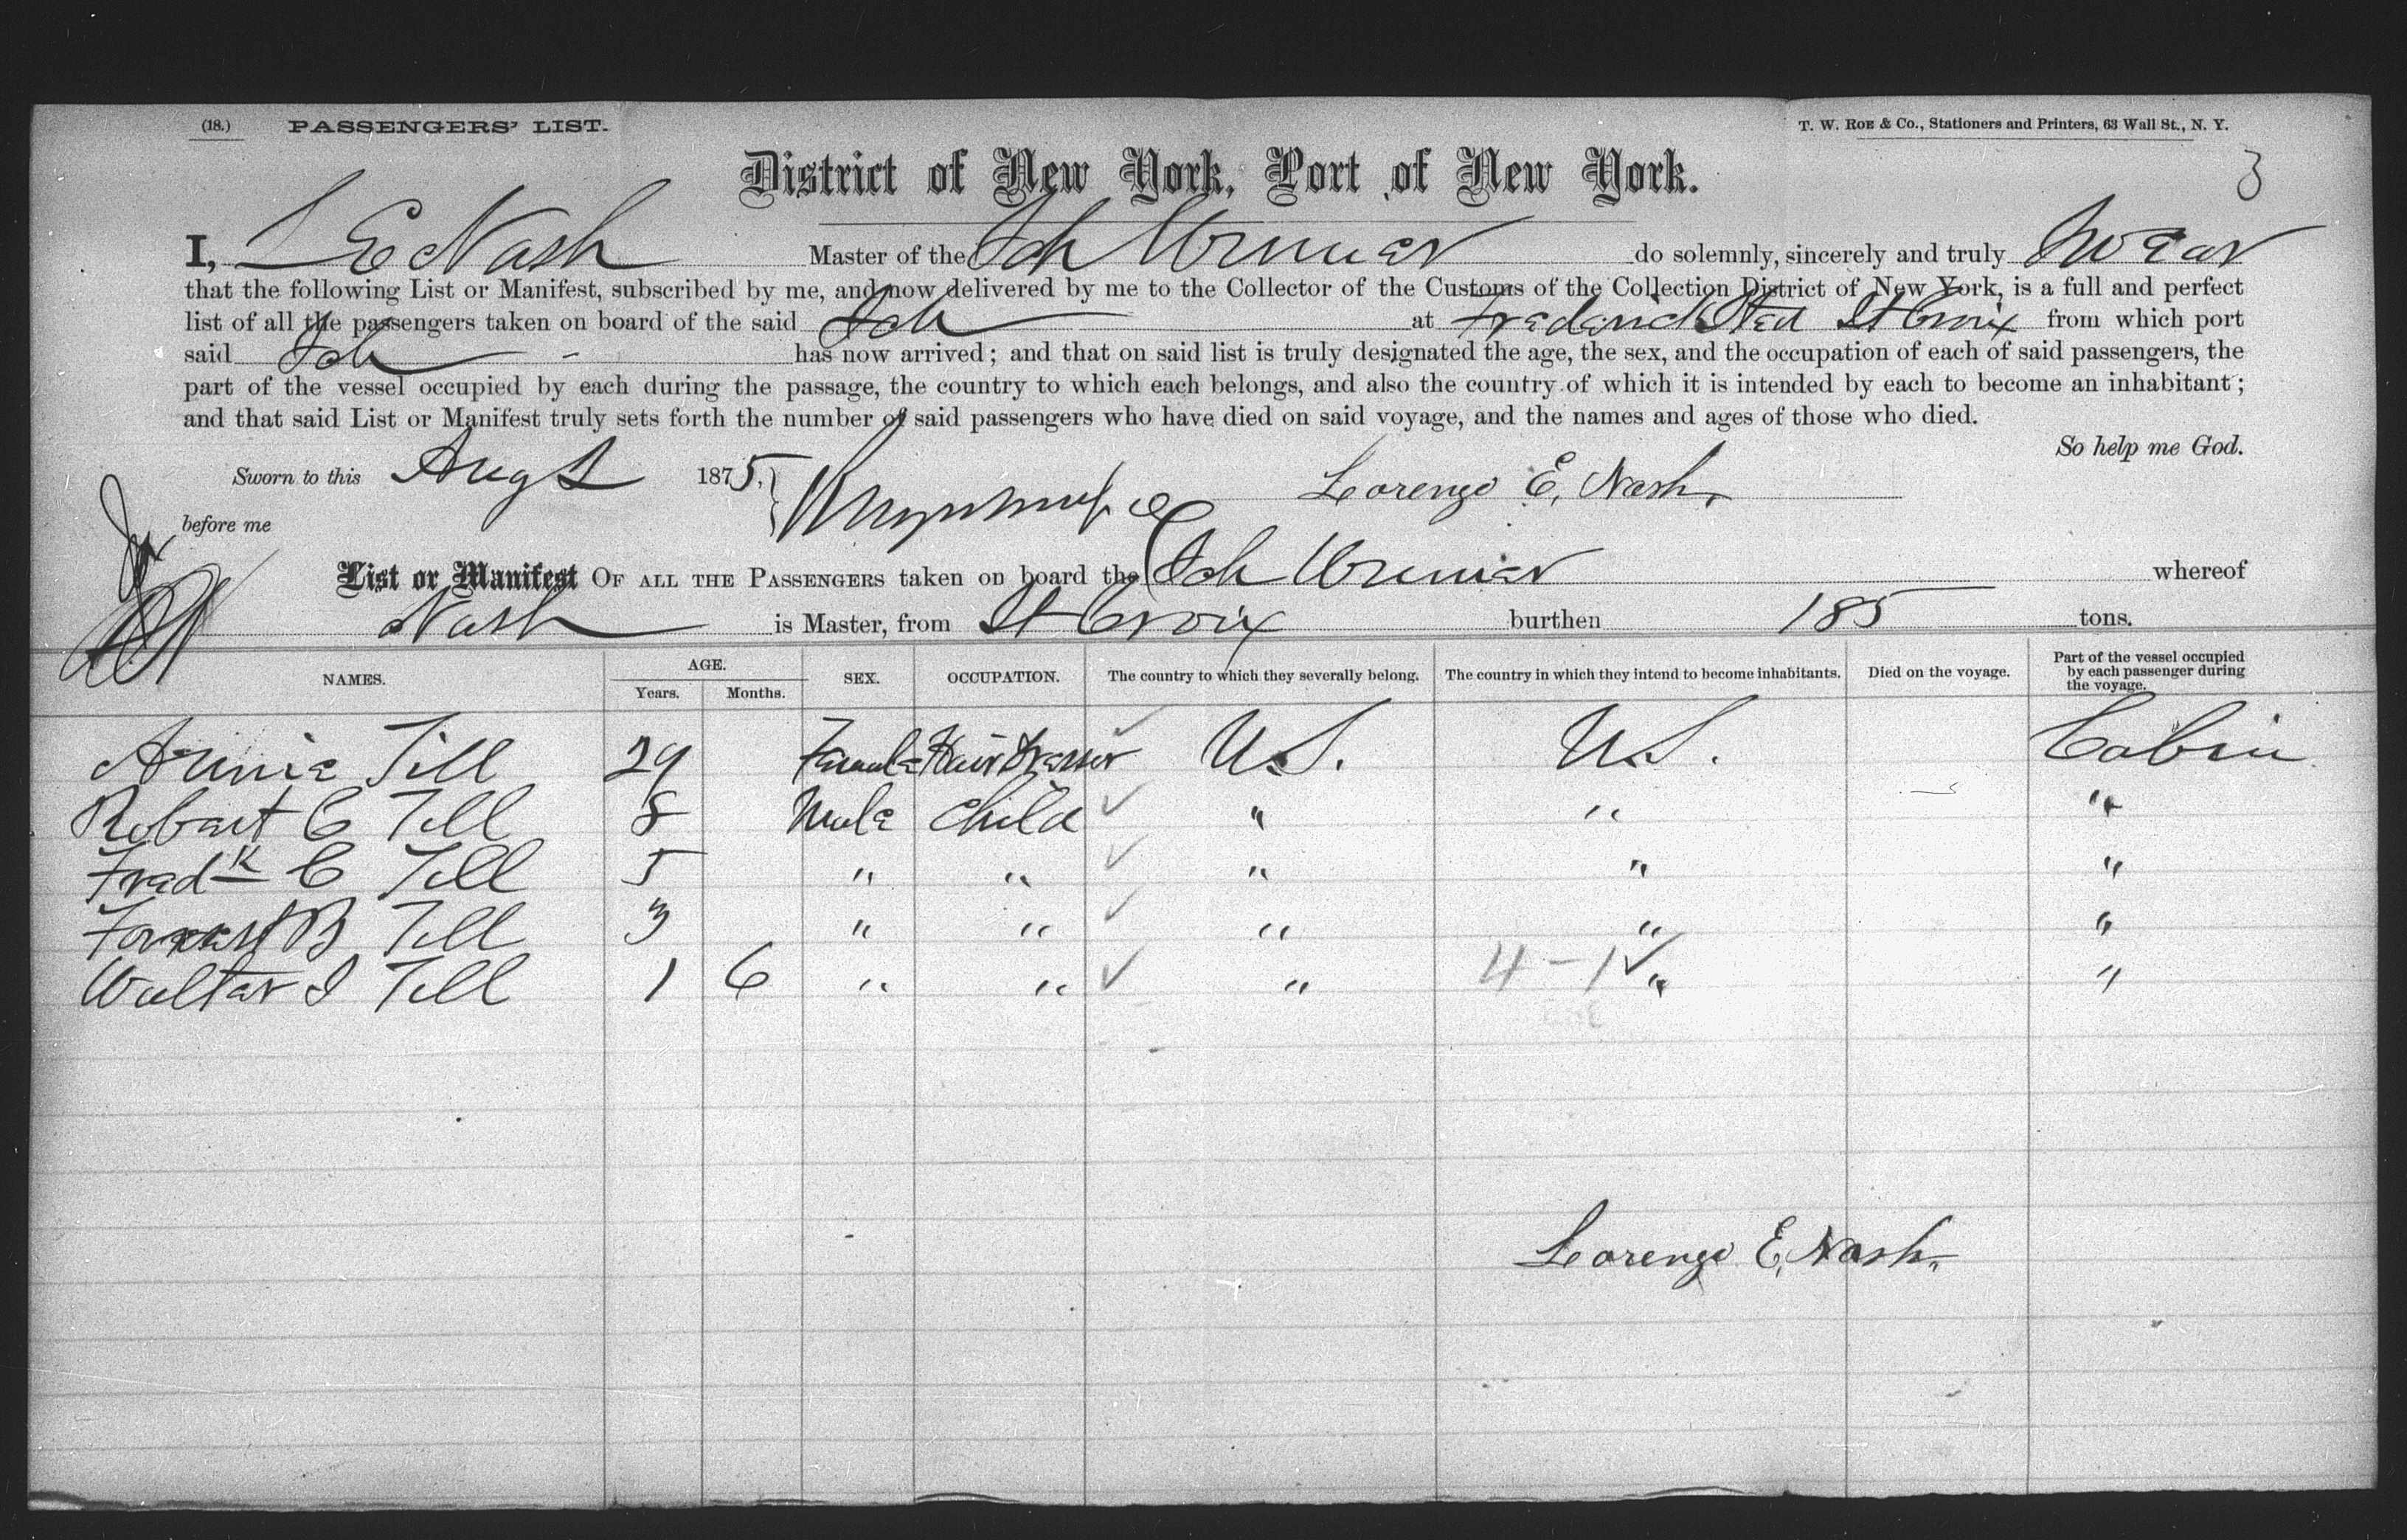 (18.) PASSENGERS' LIST. T. W. ROE & CO., Stationers and Printers, 63 Wall St., N. Y.
3
District of New York, Port of New York.
I, L E Nash Master of the Sch do solemnly, sincerely and truly Swear
that the following List or Manifest, subscribed by me, and now delivered by me to the Collector of the Customs of the Collection District of New York, is a full and perfect
list of all the passengers taken on board of the said Sch at Frederick Sted St Croix from which port
said Sch has now arrived; and that on said list is truly designated the age, the sex, and the occupation of each of said passengers, the
part of the vessel occupied by each during the passage, the country to which each belongs, and also the country of which it is intended by each to become an inhabitant;
and that said List or Manifest truly sets forth the number of said passengers who have died on said voyage, and the names and ages of those who died.
So help me God.
Sworn to this Aug 2 1875. Lorenzo E. Nash,
before me
List or Manifest OF ALL THE PASSENGERS taken on board the Sch whereof
Nash is Master, from St Croix burthen 185 tons.
NAMES. AGE. Years. Months. SEX. OCCUPATION. The country to which they severally belong. The country in which they intend to become inhabitants. Died on the voyage. Part of the vessel occupied by each passenger during the voyage.
Annie Till 29 Female Hair Dresser U.S. U.S. Cabin
Robert C Till 8 Male Child " " "
Fredk C Till 5 " " " " "
Forrest B Till 3 " " " " "
Walter I Till 1 6 " " " 4 - 1 " "
Lorenzo E. Nash,